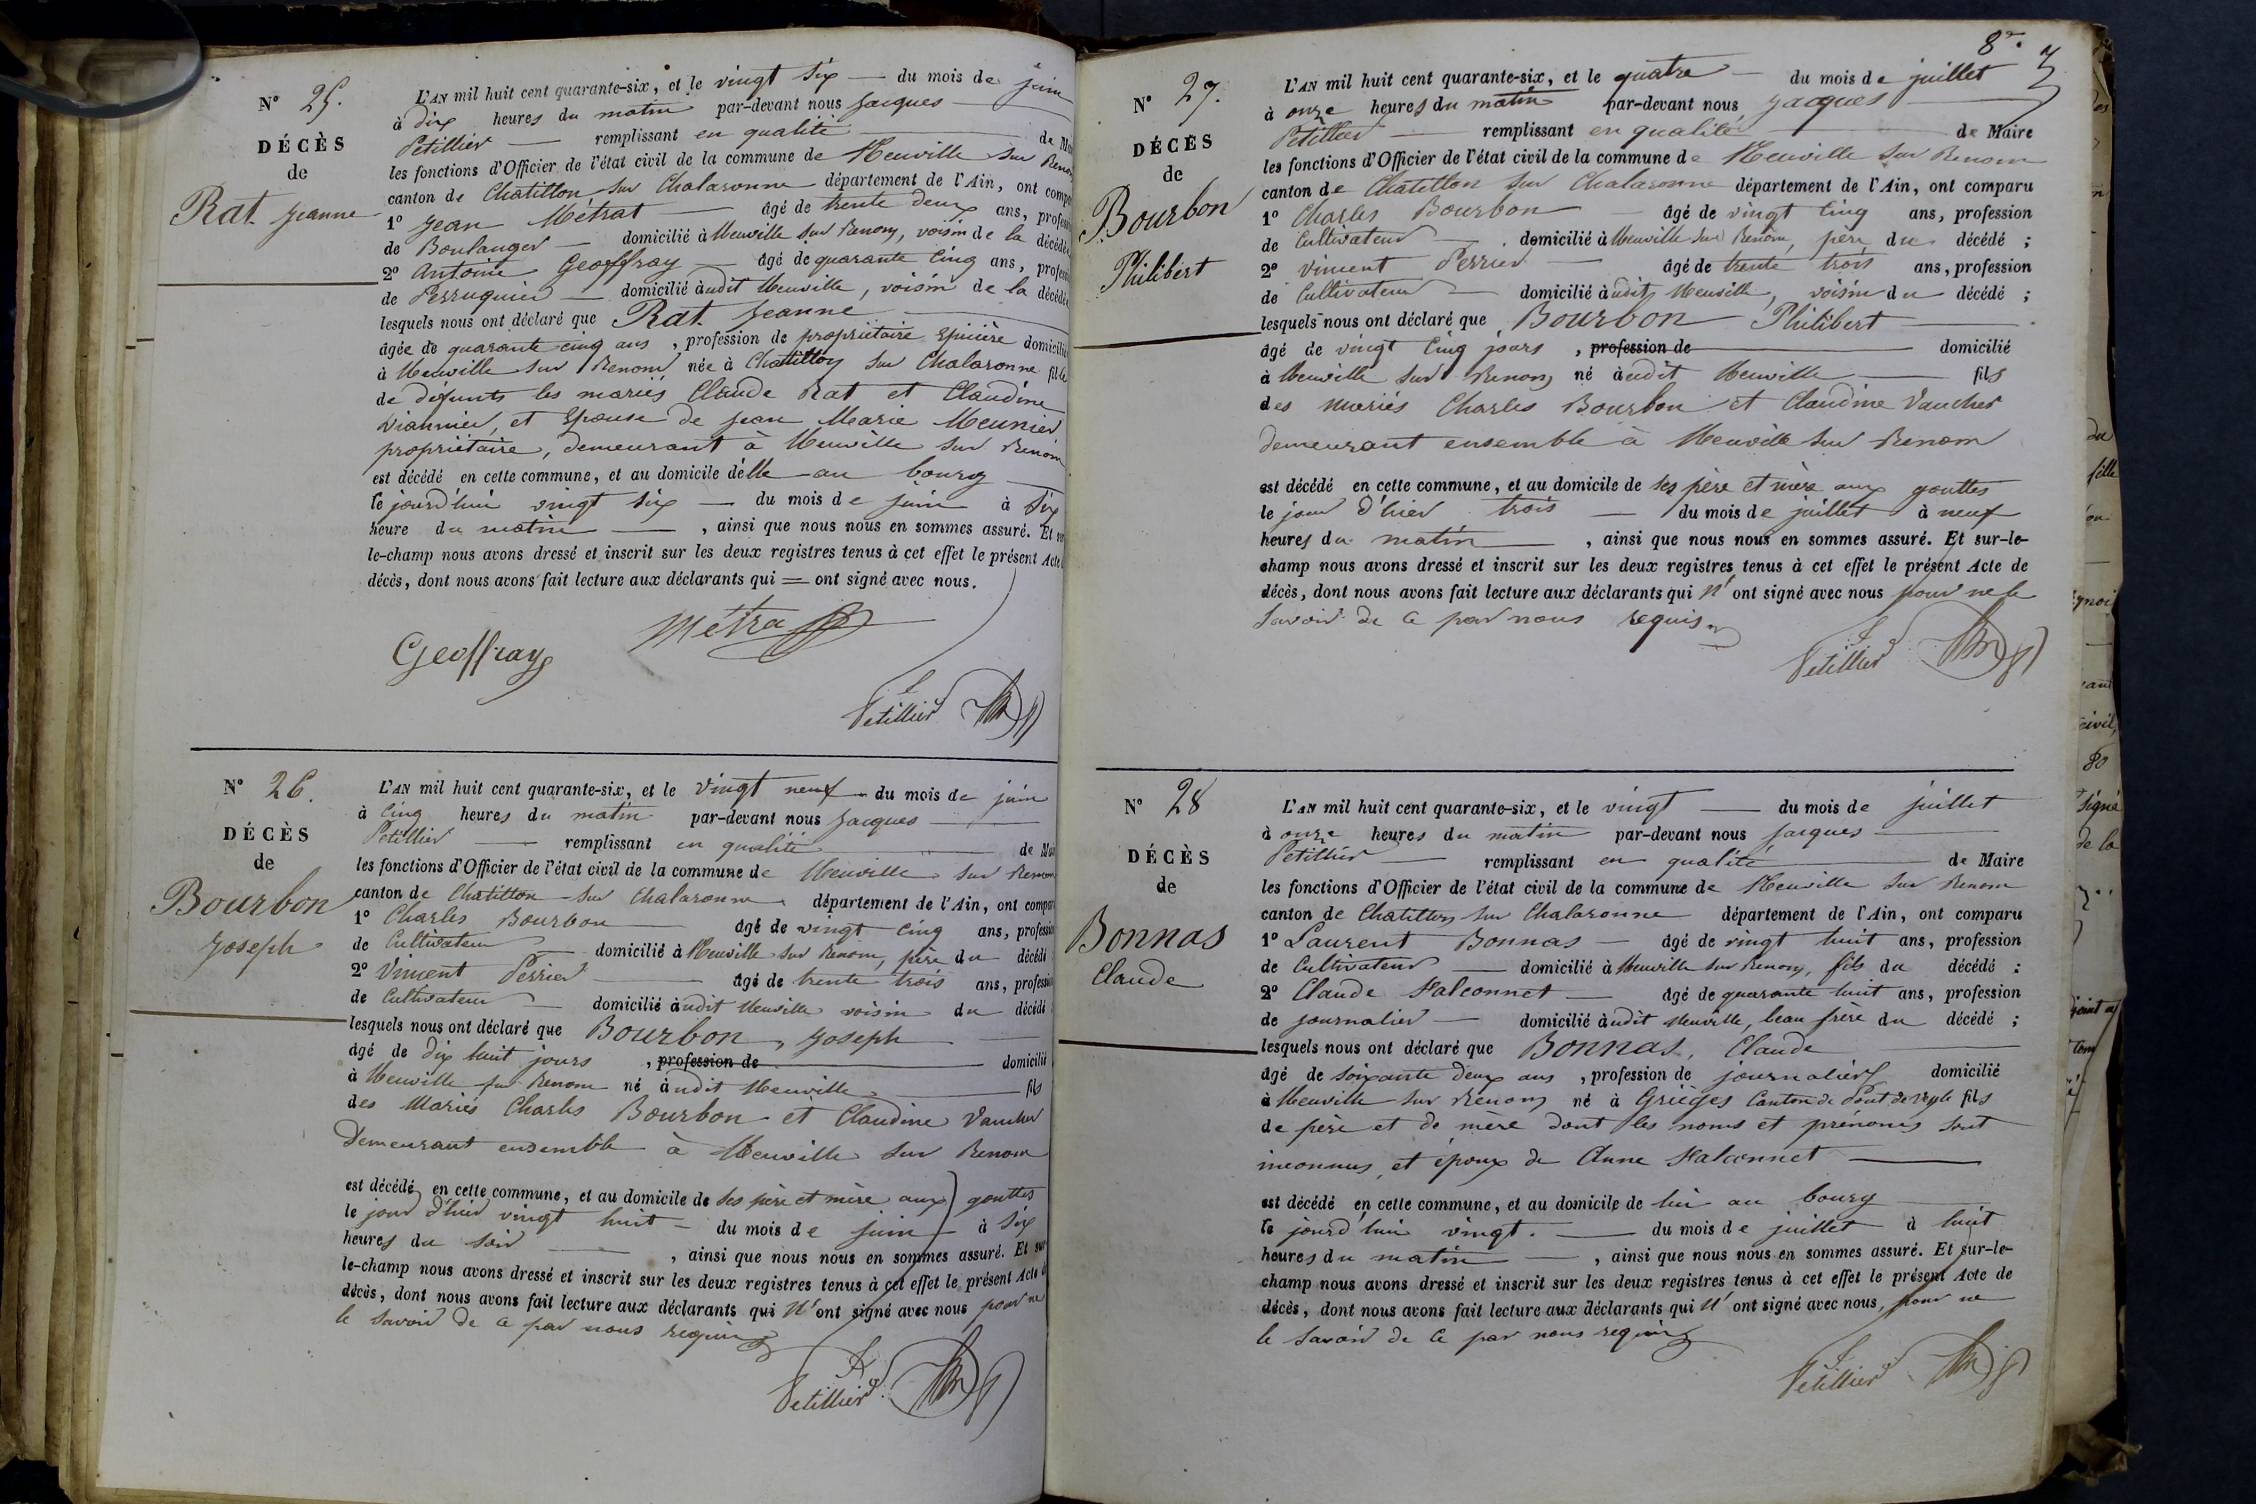 N° 25.
DÉCÈS
de
Rat Jeanne
L'AN mil huit cent quarante-six, et le vingt six — du mois de juin
à dix heures du matin par-devant nous Jacques
Petillier — remplissant en qualité — de
les fonctions d'Officier de l'état civil de la commune de Neuville sur Renom
canton de Chatillon sur Chalaronne département de l'Ain, ont
1° Jean Métrat — âgé de trente deux ans,
de Boulanger — domicilié à Neuville sur Renom, voisin de la décédée
2° Antoine Geoffray — âgé de quarante cinq ans,
de Perruquier — domicilié audit Neuville, voisin de la décédée
lesquels nous ont déclaré que Rat Jeanne
âgée de quarante cinq ans, profession de propriétaire Epicière
à Neuville sur Renom née à Chatillon sur Chalaronne fille
de défunts les mariés Claude Rat et Claudine
Viannier, et Epouse de Jean Marie Meunier
propriétaire, demeurant à Neuville sur Renom
est décédé en cette commune, et au domicile d'elle au bourg
le jourd'hui vingt six — du mois de juin à six
heure du matin —, ainsi que nous nous en sommes assuré. Et
le-champ nous avons dressé et inscrit sur les deux registres tenus à cet effet le présent Acte
décès, dont nous avons fait lecture aux déclarants qui = ont signé avec nous.
Geoffray Métra
Petillier
N° 26.
DÉCÈS
de
Bourbon
Joseph
L'AN mil huit cent quarante-six, et le vingt neuf — du mois de juin
à cinq heures du matin par-devant nous Jacques
Petillier — remplissant en qualité — de
les fonctions d'Officier de l'état civil de la commune de Neuville sur Renom
canton de Chatillon sur Chalaronne département de l'Ain, ont
1° Charles Bourbon âgé de vingt cinq ans,
de Cultivateur — domicilié à Neuville sur Renom, père du décédé
2° Vincent Perrier — âgé de trente trois ans,
de Cultivateur — domicilié audit Neuville voisin du décédé
lesquels nous ont déclaré que Bourbon, Joseph
âgé de dix huit jours, profession de — domicilié
à Neuville sur Renom né audit Neuville — fils
des Mariés Charles Bourbon et Claudine Vaucher
Demeurant ensemble à Neuville sur Renom
est décédé en cette commune, et au domicile de ses père et mère aux gouttes
le jour d'hier vingt huit — du mois de juin — à six
heures du soir —, ainsi que nous nous en sommes assuré. Et sur
le-champ nous avons dressé et inscrit sur les deux registres tenus à cet effet le présent Acte
décès, dont nous avons fait lecture aux déclarants qui n'ont signé avec nous pour ne
le savoir de ce par nous requis
Petillier
8e.
N° 27.
DÉCÈS
de
Bourbon
Philibert
L'AN mil huit cent quarante-six, et le quatre — du mois de juillet
à onze heures du matin par-devant nous Jacques
Petillier — remplissant en qualité — de Maire
les fonctions d'Officier de l'état civil de la commune de Neuville sur Renom
canton de Chatillon sur Chalaronne département de l'Ain, ont comparu
1° Charles Bourbon — âgé de vingt cinq ans, profession
de Cultivateur — domicilié à Neuville sur Renom, père du décédé ;
2° Vincent Perrier — âgé de trente trois ans, profession
de Cultivateur — domicilié audit Neuville, voisin du décédé ;
lesquels nous ont déclaré que Bourbon Philibert —
âgé de vingt cinq jours, profession de — domicilié
à Neuville sur Renom né audit Neuville — fils
des mariés Charles Bourbon et Claudine Vaucher
demeurant ensemble à Neuville sur Renom
est décédé en cette commune, et au domicile de ses père et mère aux gouttes
le jour d'hier trois — du mois de juillet à neuf
heures du matin —, ainsi que nous nous en sommes assuré. Et sur-le-
champ nous avons dressé et inscrit sur les deux registres tenus à cet effet le présent Acte de
décès, dont nous avons fait lecture aux déclarants qui n'ont signé avec nous pour ne le
savoir de ce par nous requis.
Petillier
N° 28
DÉCÈS
de
Bonnas
Claude
L'AN mil huit cent quarante-six, et le vingt — du mois de juillet
à onze heures du matin par-devant nous Jacques
Petillier — remplissant en qualité — de Maire
les fonctions d'Officier de l'état civil de la commune de Neuville sur Renom
canton de Chatillon sur Chalaronne département de l'Ain, ont comparu
1° Laurent Bonnas — âgé de vingt huit ans, profession
de Cultivateur — domicilié à Neuville sur Renom, fils du décédé ;
2° Claude Falconnet — âgé de quarante huit ans, profession
de journalier — domicilié audit Neuville, beau frère du décédé ;
lesquels nous ont déclaré que Bonnas, Claude
âgé de soixante deux ans, profession de journalier domicilié
à Neuville sur Renom né à Grièges Canton de Pont de Veyle fils
de père et de mère dont les noms et prénoms sont
inconnus, et époux de Anne Falconnet —
est décédé en cette commune, et au domicile de lui au bourg
le jourd'hui vingt. — du mois de juillet à huit
heures du matin —, ainsi que nous nous en sommes assuré. Et sur-le-
champ nous avons dressé et inscrit sur les deux registres tenus à cet effet le présent Acte de
décès, dont nous avons fait lecture aux déclarants qui n'ont signé avec nous, pour ne
le savoir de ce par nous requis
Petillier